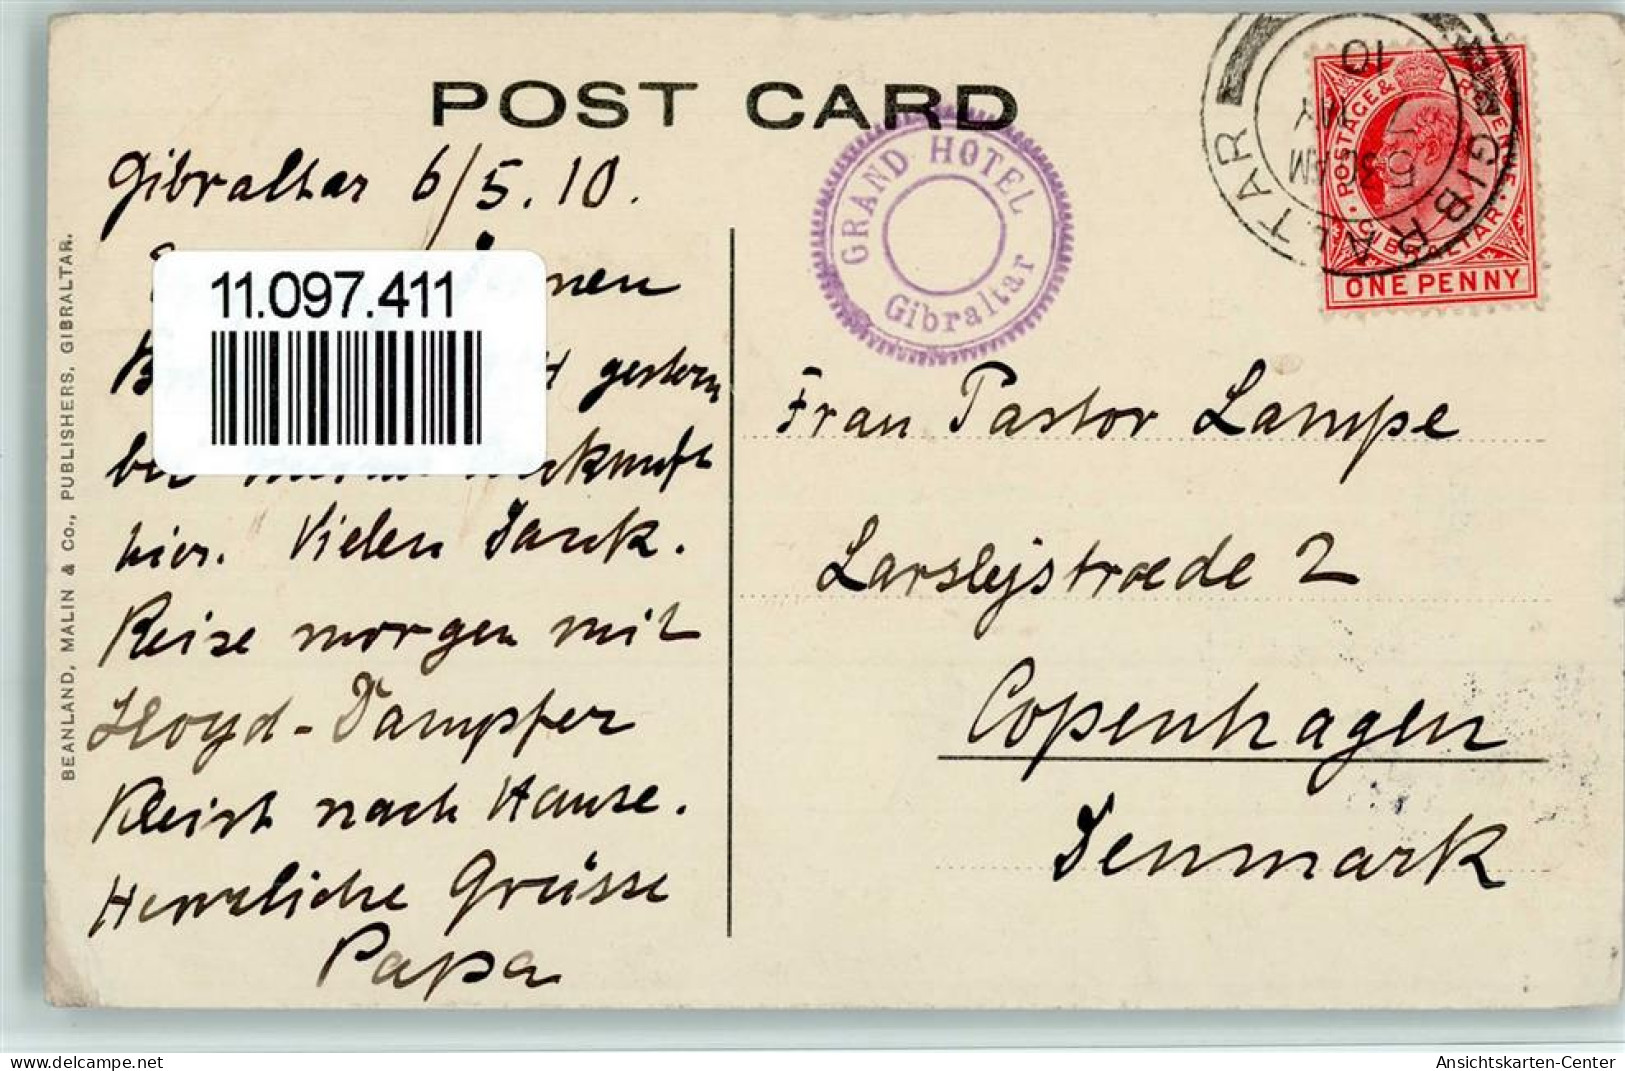 POST CARD
Gibraltar 6/5.10.
11.097.411
nen
gestern
bei meiner Ankunft
hier. Vielen Dank.
Reise morgen mit
Lloyd-Dampfer
Kleist nach Hause.
Herzliche Grüsse
Papa
BEANLAND, MALIN & Co., PUBLISHERS, GIBRALTAR.
GRAND HOTEL
Gibraltar
GIBRALTAR
5 30 AM
7 MY
10
POSTAGE & REVENUE
GIBRALTAR
ONE PENNY
Frau Pastor Lampe
Larslejstraede 2
Copenhagen
Denmark
Ansichtskarten-Center